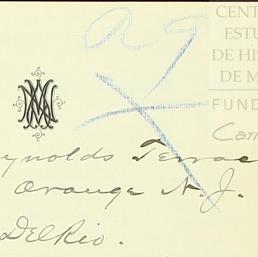 CENT
ESTU
DE HIS
DE M
FUND
Car
eynolds Terrac
Orange N.J.
DelRio.